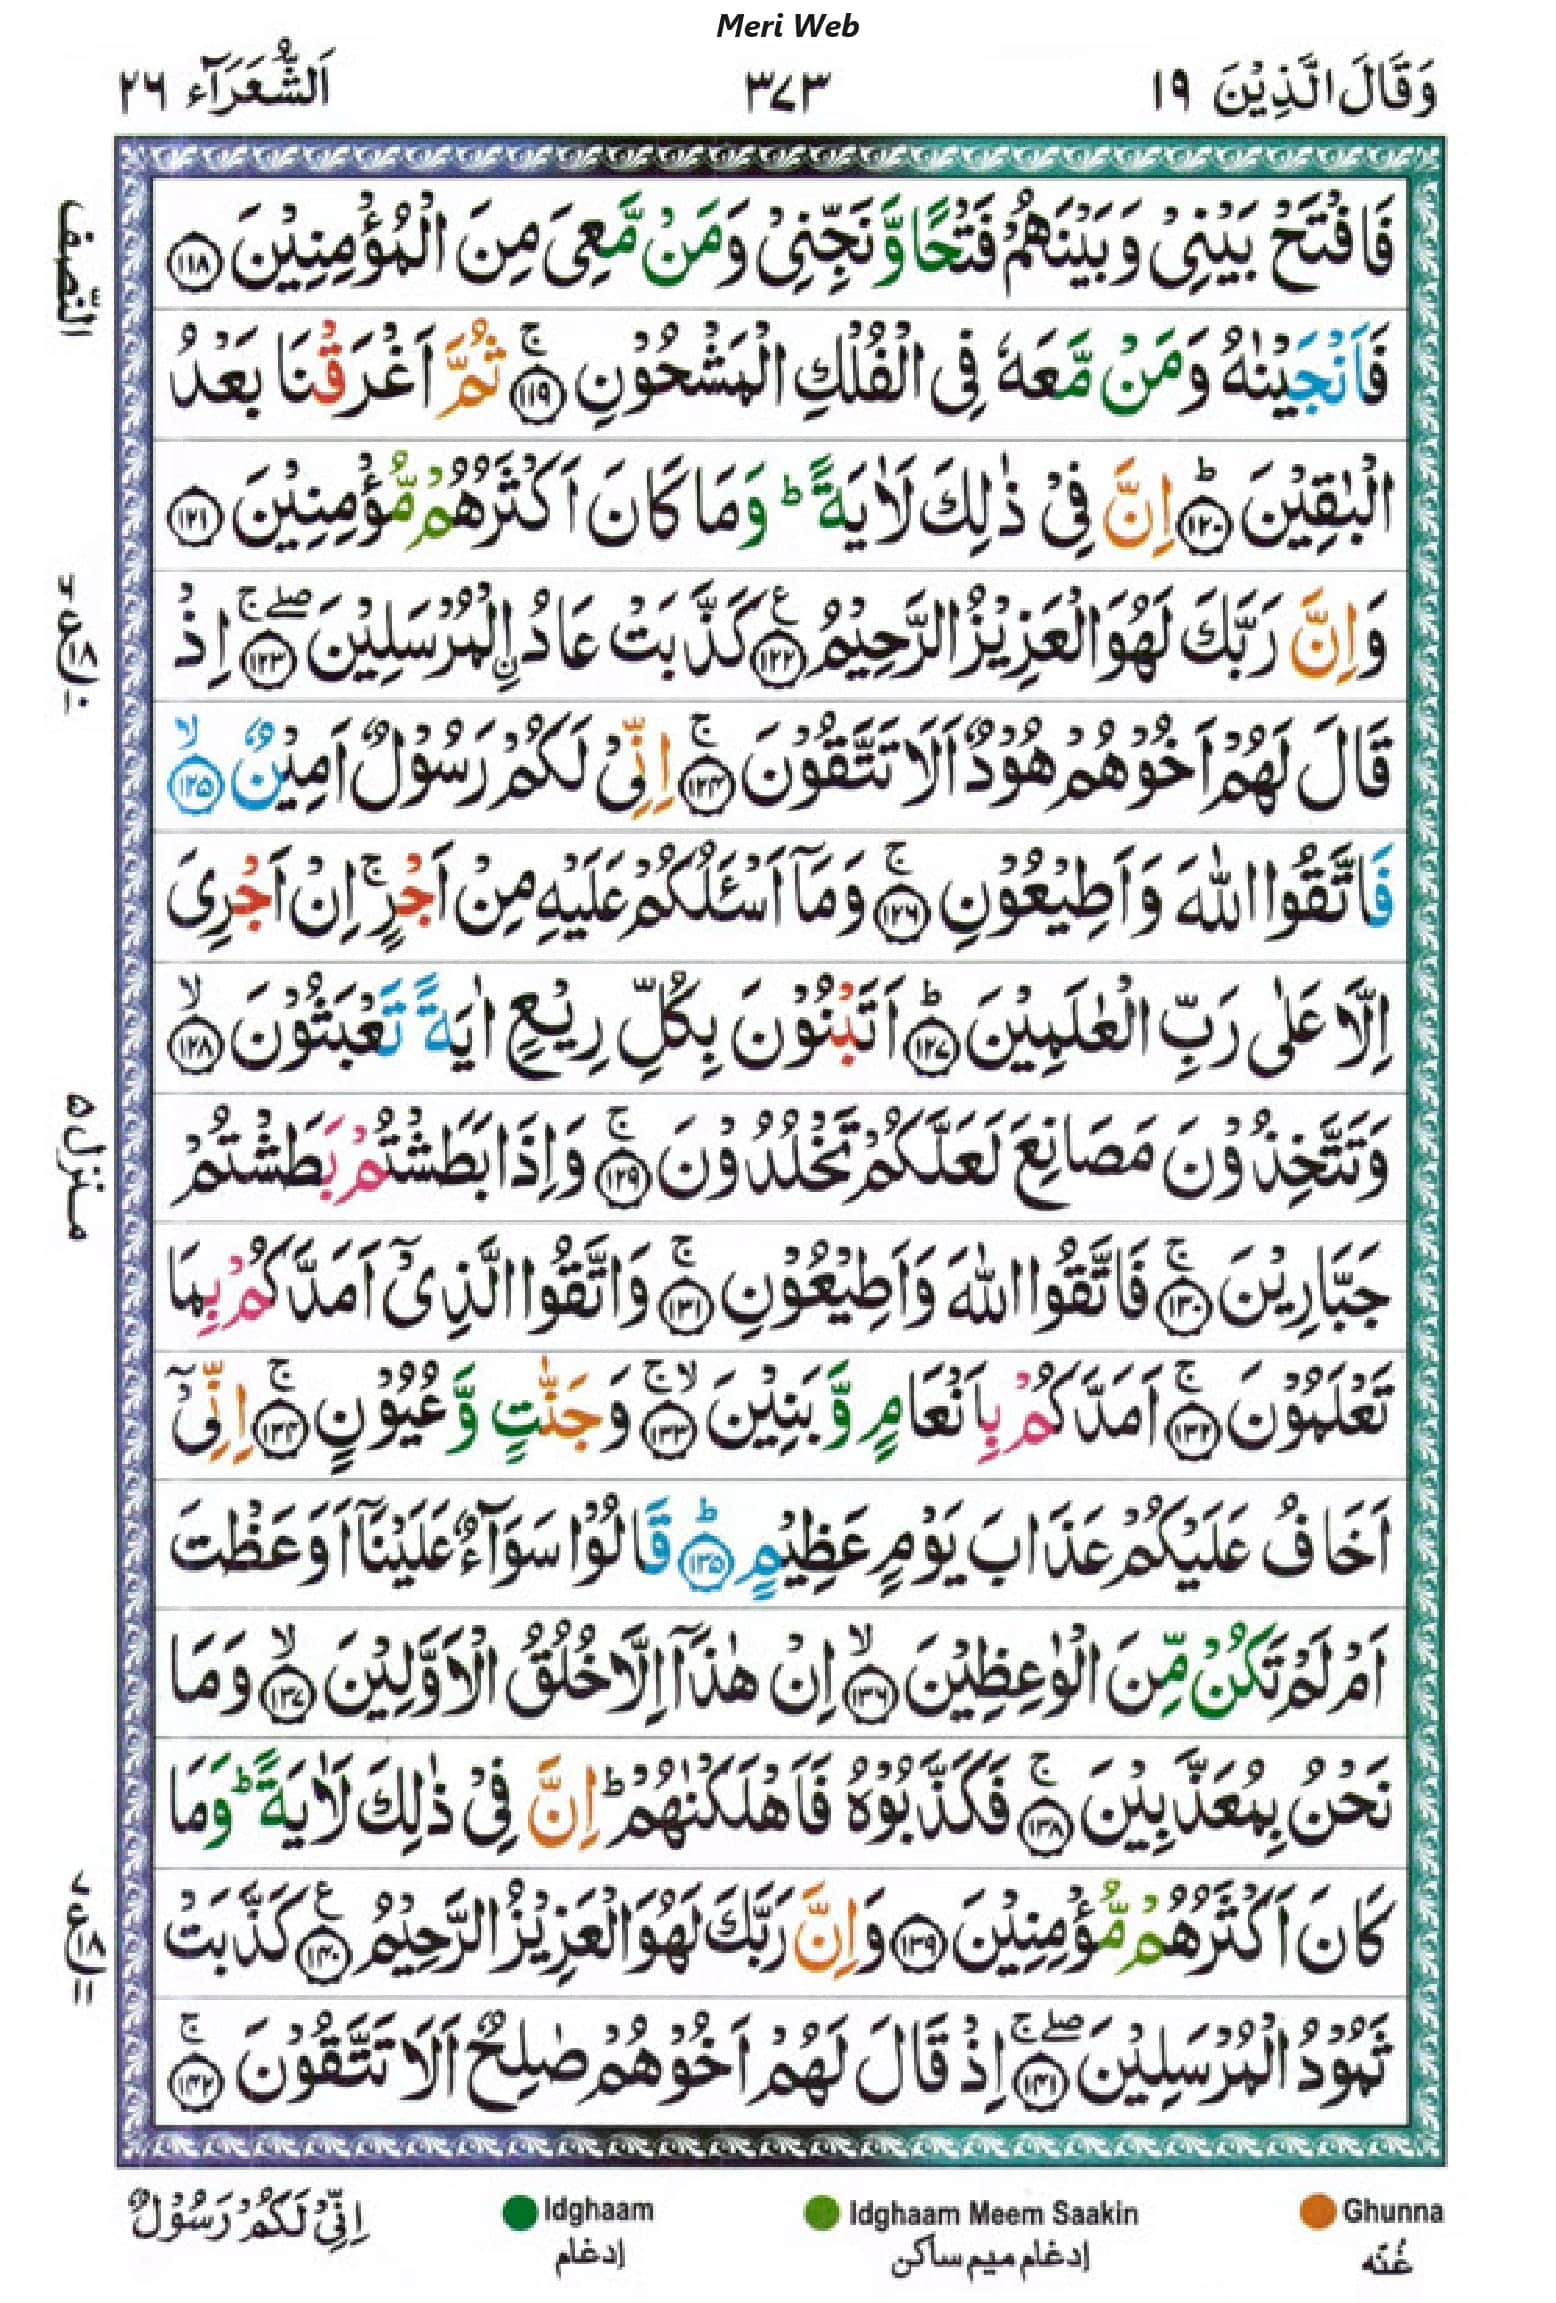 Meri Web
وَقَالَ الَّذِيْنَ ١٩
٣٧٣
اَلشُّعَرَآء ٢٦
فَافْتَحْ بَيْنِيْ وَبَيْنَهُمْ فَتْحًا وَّنَجِّنِيْ وَمَنْ مَّعِيَ مِنَ الْمُؤْمِنِيْنَ ﴿١١٨﴾
فَاَنْجَيْنٰهُ وَمَنْ مَّعَهٗ فِي الْفُلْكِ الْمَشْحُوْنِ ﴿١١٩﴾ۚ ثُمَّ اَغْرَقْنَا بَعْدُ
الْبٰقِيْنَ ﴿١٢٠﴾ؕ اِنَّ فِيْ ذٰلِكَ لَاٰيَةً ؕ وَمَا كَانَ اَكْثَرُهُمْ مُّؤْمِنِيْنَ ﴿١٢١﴾
وَاِنَّ رَبَّكَ لَهُوَ الْعَزِيْزُ الرَّحِيْمُ ﴿١٢٢﴾ع كَذَّبَتْ عَادُ اِ۟لْمُرْسَلِيْنَ ﴿١٢٣﴾ۖۚ اِذْ
قَالَ لَهُمْ اَخُوْهُمْ هُوْدٌ اَلَا تَتَّقُوْنَ ﴿١٢٤﴾ۚ اِنِّيْ لَكُمْ رَسُوْلٌ اَمِيْنٌ ﴿١٢٥﴾ۙ
فَاتَّقُوا اللّٰهَ وَاَطِيْعُوْنِ ﴿١٢٦﴾ۚ وَمَاۤ اَسْـَٔلُكُمْ عَلَيْهِ مِنْ اَجْرٍ ۚ اِنْ اَجْرِيَ
اِلَّا عَلٰى رَبِّ الْعٰلَمِيْنَ ﴿١٢٧﴾ؕ اَتَبْنُوْنَ بِكُلِّ رِيْعٍ اٰيَةً تَعْبَثُوْنَ ﴿١٢٨﴾ۙ
وَتَتَّخِذُوْنَ مَصَانِعَ لَعَلَّكُمْ تَخْلُدُوْنَ ﴿١٢٩﴾ۚ وَاِذَا بَطَشْتُمْ بَطَشْتُمْ
جَبَّارِيْنَ ﴿١٣٠﴾ۚ فَاتَّقُوا اللّٰهَ وَاَطِيْعُوْنِ ﴿١٣١﴾ۚ وَاتَّقُوا الَّذِيْۤ اَمَدَّكُمْ بِمَا
تَعْلَمُوْنَ ﴿١٣٢﴾ۚ اَمَدَّكُمْ بِاَنْعَامٍ وَّبَنِيْنَ ﴿١٣٣﴾ۙۚ وَجَنّٰتٍ وَّعُيُوْنٍ ﴿١٣٤﴾ۚ اِنِّيْۤ
اَخَافُ عَلَيْكُمْ عَذَابَ يَوْمٍ عَظِيْمٍ ﴿١٣٥﴾ؕ قَالُوْا سَوَآءٌ عَلَيْنَاۤ اَوَعَظْتَ
اَمْ لَمْ تَكُنْ مِّنَ الْوٰعِظِيْنَ ﴿١٣٦﴾ۙ اِنْ هٰذَاۤ اِلَّا خُلُقُ الْاَوَّلِيْنَ ﴿١٣٧﴾ۙ وَمَا
نَحْنُ بِمُعَذَّبِيْنَ ﴿١٣٨﴾ۚ فَكَذَّبُوْهُ فَاَهْلَكْنٰهُمْ ؕ اِنَّ فِيْ ذٰلِكَ لَاٰيَةً ؕ وَمَا
كَانَ اَكْثَرُهُمْ مُّؤْمِنِيْنَ ﴿١٣٩﴾ وَاِنَّ رَبَّكَ لَهُوَ الْعَزِيْزُ الرَّحِيْمُ ﴿١٤٠﴾ع كَذَّبَتْ
ثَمُوْدُ الْمُرْسَلِيْنَ ﴿١٤١﴾ۖۚ اِذْ قَالَ لَهُمْ اَخُوْهُمْ صٰلِحٌ اَلَا تَتَّقُوْنَ ﴿١٤٢﴾ۚ
النّصف
٦ ع ٨ ١٠
منزل ٥
٧ ع ١٨ ١١
Ghunna
غُنّه
Idghaam Meem Saakin
إدغام ميم ساكن
Idghaam
إدغام
اِنِّيْ لَكُمْ رَسُوْلٌ